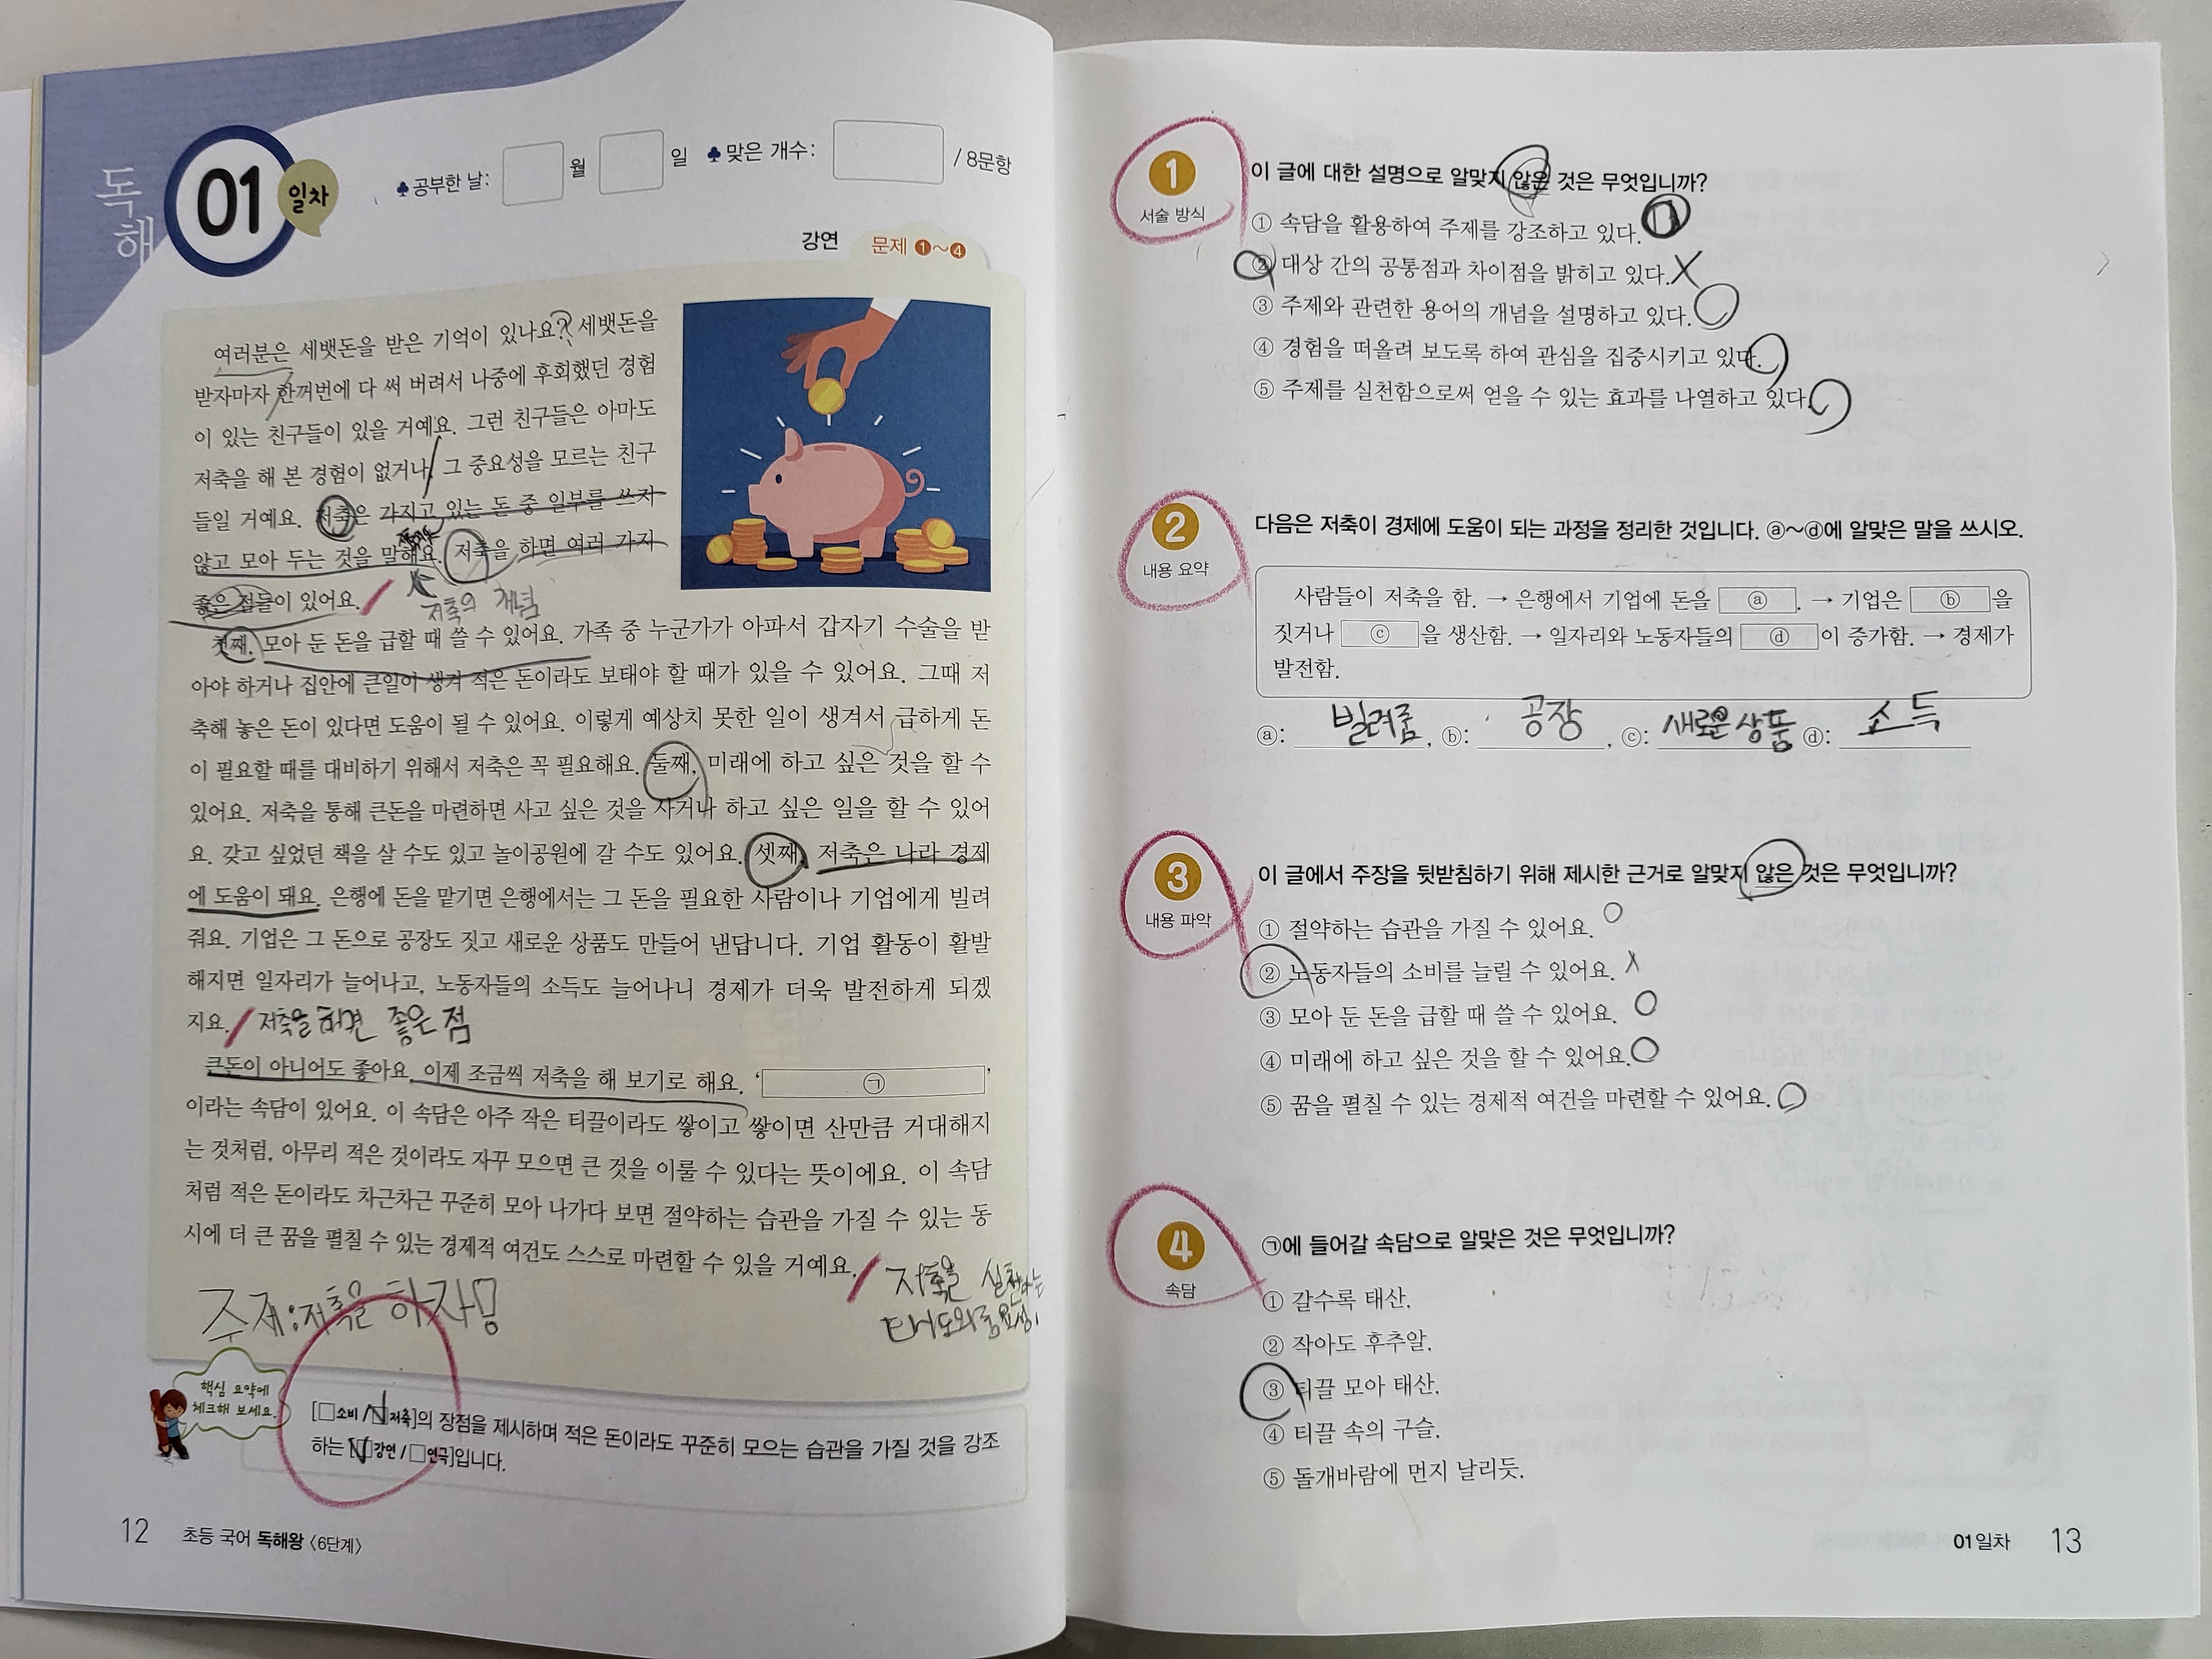 독해
01 일차
♣공부한 날: 월 일 ♣맞은 개수: / 8문항
강연 문제 ❶~❹
여러분은 세뱃돈을 받은 기억이 있나요? 세뱃돈을
받자마자 한꺼번에 다 써 버려서 나중에 후회했던 경험
이 있는 친구들이 있을 거예요. 그런 친구들은 아마도
저축을 해 본 경험이 없거나, 그 중요성을 모르는 친구
들일 거예요. 저축은 가지고 있는 돈 중 일부를 쓰지
않고 모아 두는 것을 말해요. 저축을 하면 여러 가지
좋은 점들이 있어요.
저축의 개념
첫째, 모아 둔 돈을 급할 때 쓸 수 있어요. 가족 중 누군가가 아파서 갑자기 수술을 받
아야 하거나 집안에 큰일이 생겨 적은 돈이라도 보태야 할 때가 있을 수 있어요. 그때 저
축해 놓은 돈이 있다면 도움이 될 수 있어요. 이렇게 예상치 못한 일이 생겨서 급하게 돈
이 필요할 때를 대비하기 위해서 저축은 꼭 필요해요. 둘째, 미래에 하고 싶은 것을 할 수
있어요. 저축을 통해 큰돈을 마련하면 사고 싶은 것을 사거나 하고 싶은 일을 할 수 있어
요. 갖고 싶었던 책을 살 수도 있고 놀이공원에 갈 수도 있어요. 셋째, 저축은 나라 경제
에 도움이 돼요. 은행에 돈을 맡기면 은행에서는 그 돈을 필요한 사람이나 기업에게 빌려
줘요. 기업은 그 돈으로 공장도 짓고 새로운 상품도 만들어 낸답니다. 기업 활동이 활발
해지면 일자리가 늘어나고, 노동자들의 소득도 늘어나니 경제가 더욱 발전하게 되겠
지요. / 저축을 하면 좋은 점
큰돈이 아니어도 좋아요. 이제 조금씩 저축을 해 보기로 해요. ‘ ㉠ ’
이라는 속담이 있어요. 이 속담은 아주 작은 티끌이라도 쌓이고 쌓이면 산만큼 거대해지
는 것처럼, 아무리 적은 것이라도 자꾸 모으면 큰 것을 이룰 수 있다는 뜻이에요. 이 속담
처럼 적은 돈이라도 차근차근 꾸준히 모아 나가다 보면 절약하는 습관을 가질 수 있는 동
시에 더 큰 꿈을 펼칠 수 있는 경제적 여건도 스스로 마련할 수 있을 거예요. / 저축을 실천하는
태도의 중요성
주제:저축을 하자!
핵심 요약에
체크해 보세요.
[□소비 / ☑저축]의 장점을 제시하며 적은 돈이라도 꾸준히 모으는 습관을 가질 것을 강조
하는 [☑강연 / □연극]입니다.
12 초등 국어 독해왕 〈6단계〉
1
서술 방식
이 글에 대한 설명으로 알맞지 않은 것은 무엇입니까?
① 속담을 활용하여 주제를 강조하고 있다.
② 대상 간의 공통점과 차이점을 밝히고 있다. X
③ 주제와 관련한 용어의 개념을 설명하고 있다.
④ 경험을 떠올려 보도록 하여 관심을 집중시키고 있다.
⑤ 주제를 실천함으로써 얻을 수 있는 효과를 나열하고 있다.
2
내용 요약
다음은 저축이 경제에 도움이 되는 과정을 정리한 것입니다. ⓐ~ⓓ에 알맞은 말을 쓰시오.
사람들이 저축을 함. → 은행에서 기업에 돈을 ⓐ . → 기업은 ⓑ 을
짓거나 ⓒ 을 생산함. → 일자리와 노동자들의 ⓓ 이 증가함. → 경제가
발전함.
ⓐ: 빌려줌, ⓑ: 공장, ⓒ: 새로운 상품 ⓓ: 소득
3
내용 파악
이 글에서 주장을 뒷받침하기 위해 제시한 근거로 알맞지 않은 것은 무엇입니까?
① 절약하는 습관을 가질 수 있어요. O
② 노동자들의 소비를 늘릴 수 있어요. X
③ 모아 둔 돈을 급할 때 쓸 수 있어요. O
④ 미래에 하고 싶은 것을 할 수 있어요. O
⑤ 꿈을 펼칠 수 있는 경제적 여건을 마련할 수 있어요. O
4
속담
㉠에 들어갈 속담으로 알맞은 것은 무엇입니까?
① 갈수록 태산.
② 작아도 후추알.
③ 티끌 모아 태산.
④ 티끌 속의 구슬.
⑤ 돌개바람에 먼지 날리듯.
01일차 13